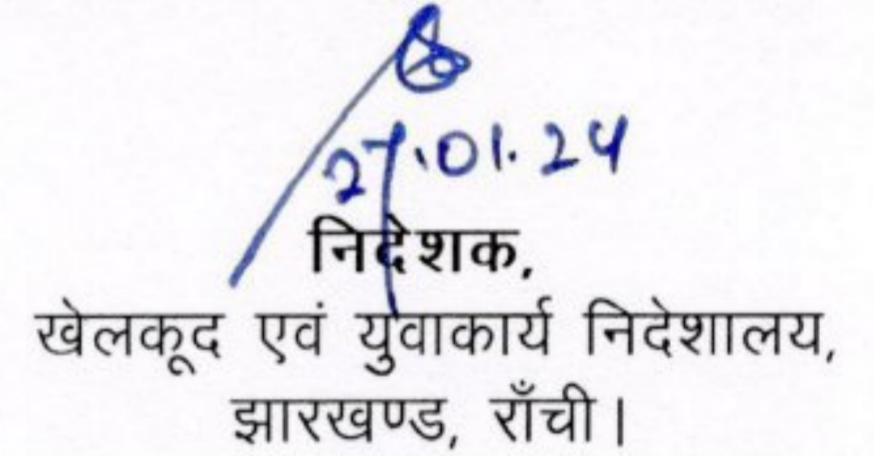 27.01.24
निदेशक,
खेलकूद एवं युवाकार्य निदेशालय,
झारखण्ड, राँची।